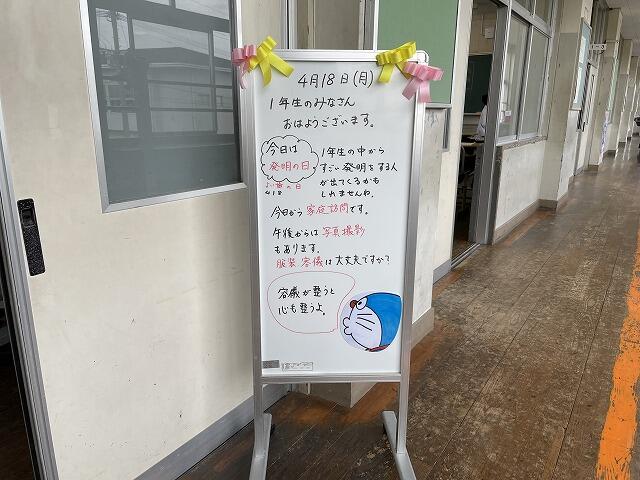 4月18日(月)
1年生のみなさん
おはようございます。
今日は
発明の日。
よい歯の日
418
1年生の中から
すごい発明をする人
が出てくるかも
しれませんね。
今日から家庭訪問です。
午後からは写真撮影
もあります。
服装容儀は大丈夫ですか？
容儀が整うと
心も整うよ。